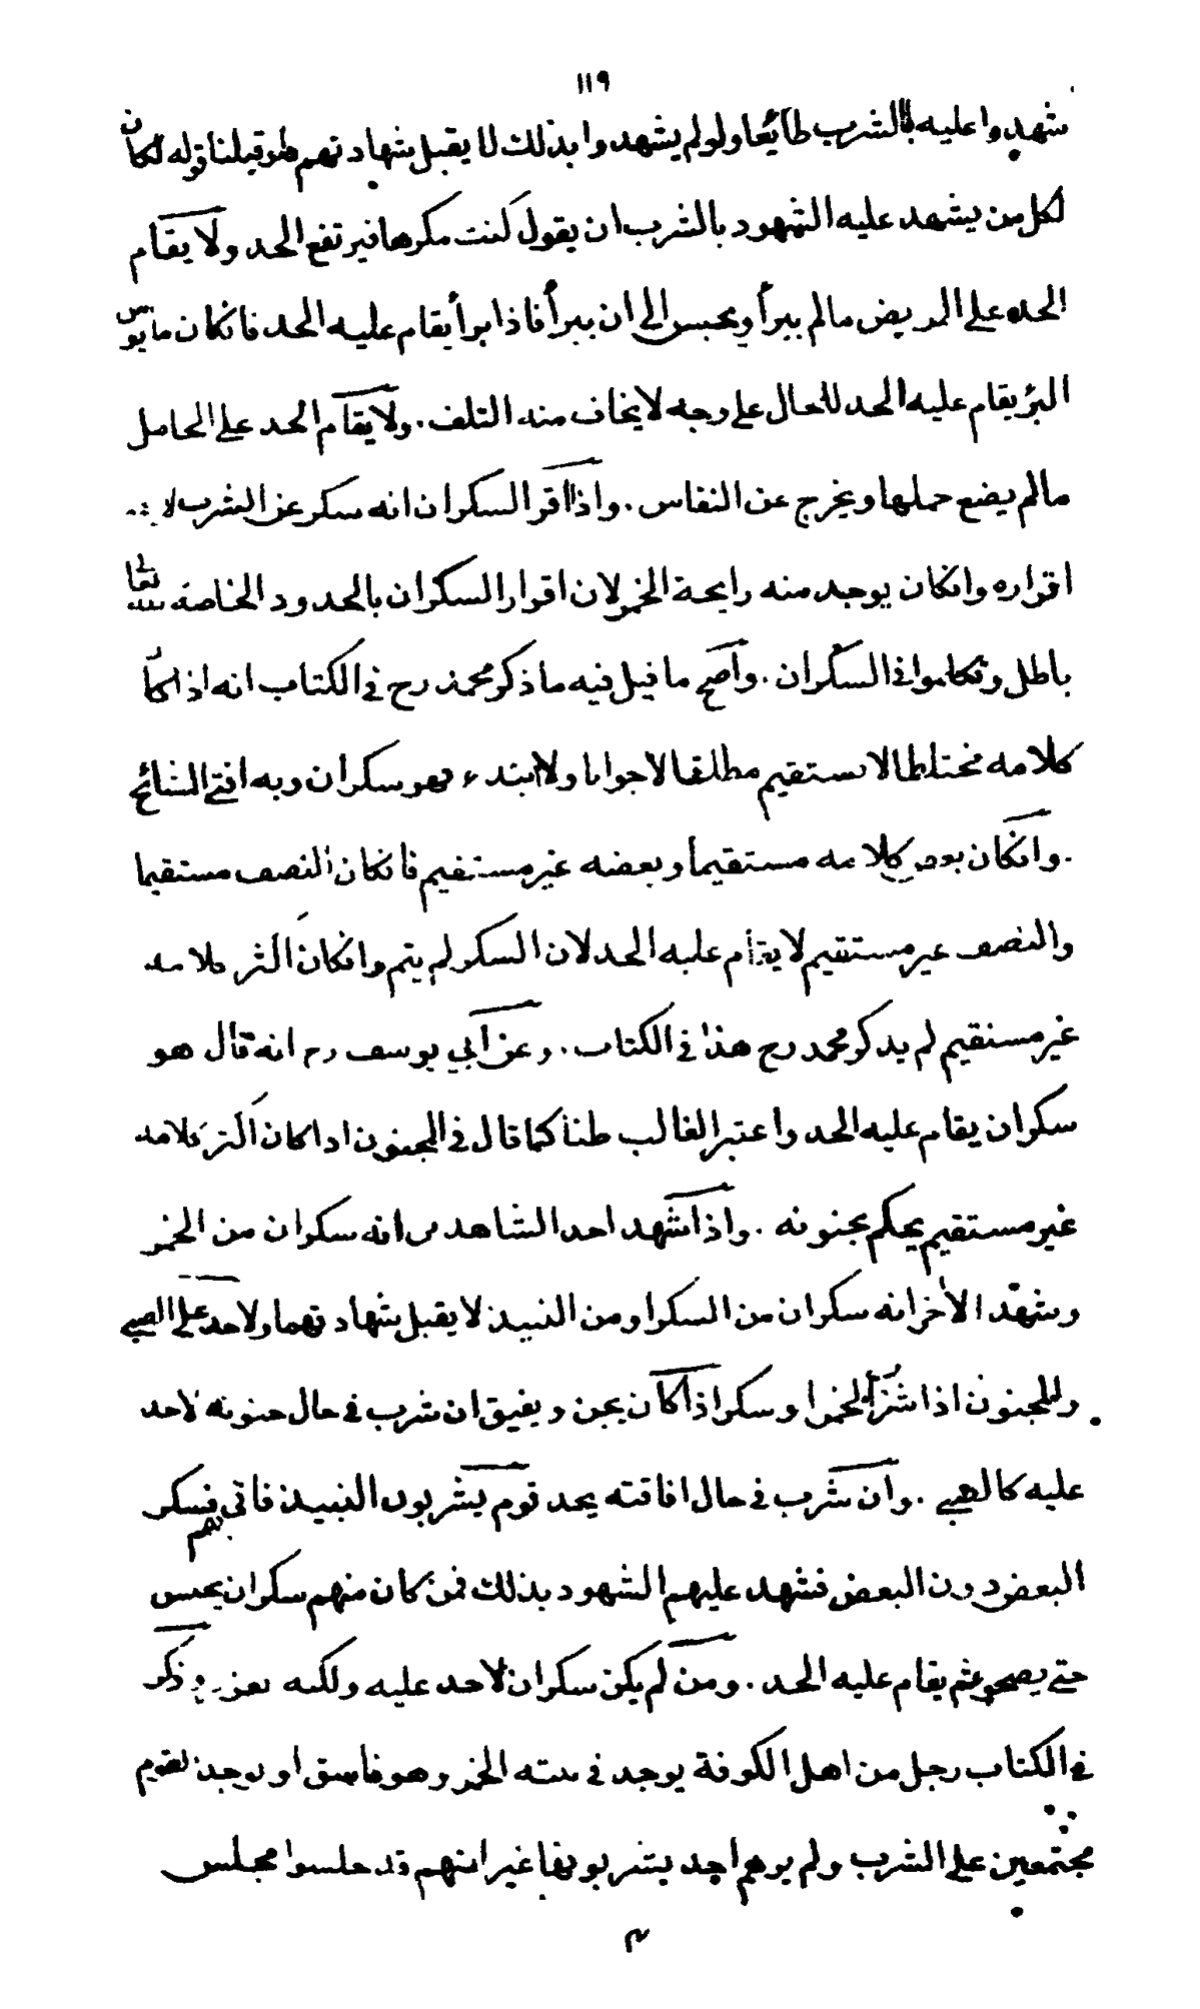 ١١٩
شهدوا عليه بالشرب طايعا ولو لم يشهدوا بذلك لا يقبل شهادتهم فلو قبلنا قوله لكان
لكل من يشهد عليه الشهود بالشرب ان يقول كنت مكرها فيرتفع الحد ولا يقام
الحد على المريض مالم يبرأ ويحبس الى ان يبرأ فاذا برأ يقام عليه الحد فانكان مايوس
البرٔ يقام عليه الحد للحال على وجه لا يخاف منه التلف . ولا يقام الحد على الحامل
مالم يضع حملها ويخرج عن النفاس . واذا اقر السكران انه سكر عن الشرب لا
اقراره وانكان يوجد منه رايحة الخمر لان اقرار السكران بالحدود الخاصة لله تعالى
باطل وتكلموا فى السكران . واصح ما قيل فيه ما ذكر محمد رح فى الكتاب انه اذا كان
كلامه مختلطا لا يستقيم مطلقا لا جوابا ولا ابتدء فهو سكران وبه افتى المشائخ
. وانكان بعض كلامه مستقيما وبعضه غير مستقيم فانكان النصف مستقيما
والنصف غير مستقيم لا يقام عليه الحد لان السكر لم يتم وانكان اكثر كلامه
غير مستقيم لم يذكر محمد رح هذا فى الكتاب . وعن ابي يوسف رح انه قال هو
سكران يقام عليه الحد واعتبر الغالب كما قال فى المجنون اذا كان اكثر كلامه
غير مستقيم يحكم بجنونه . واذا شهد احد الشاهدين انه سكران من الخمر
وشهد الاخر انه سكران من السكر او من النبيذ لا يقبل شهادتهما ولا حد على الصبي
والمجنون اذا شربا الخمر او سكر اذا كان يجن ويفيق ان شرب فى حال جنونه لا حد
عليه كالصبي . وان شرب فى حال افاقته يحد قوم يشربون النبيذ فاتى بهم فسكر
البعض دون البعض فشهد عليهم الشهود بذلك فمن كان منهم سكران يحبس
حتى يصحو ثم يقام عليه الحد . ومن لم يكن سكران لا حد عليه ولكنه يعزر وذكر
فى الكتاب رجل من اهل الكوفة يوجد فى بيته الخمر وهو فاسق او يوجد القوم
مجتمعين على الشرب ولم يرهم احد يشربونها غير انهم قد جلسوا مجلس